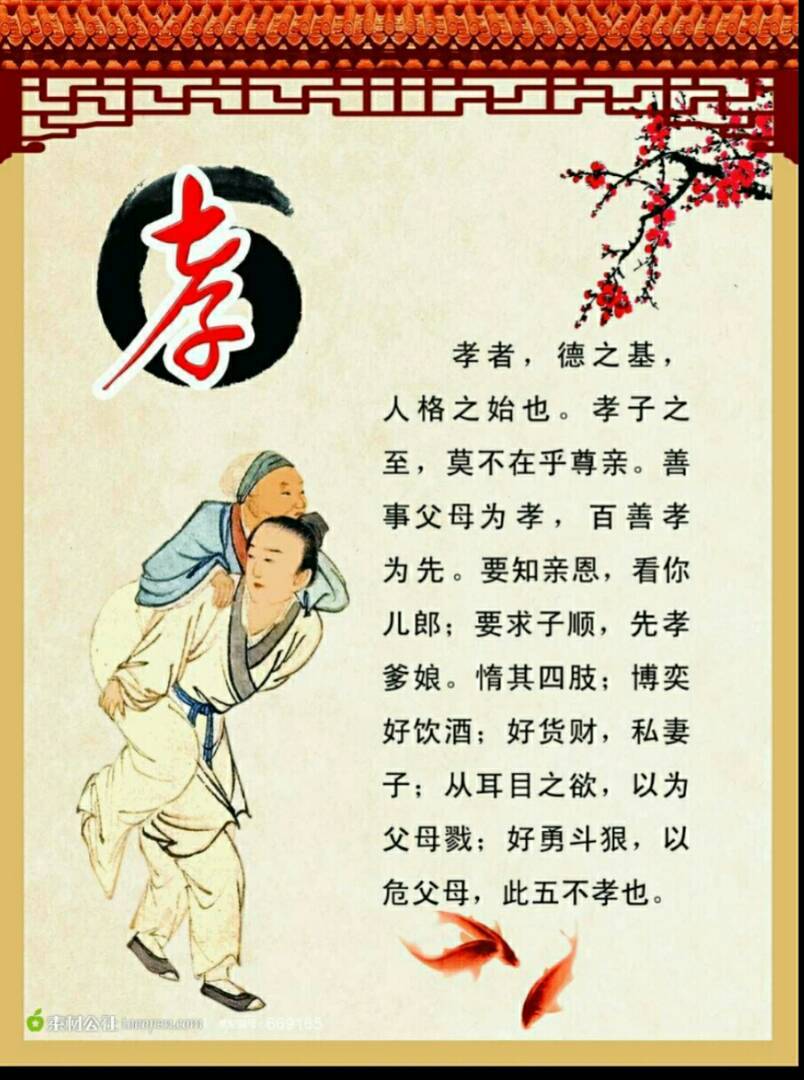 孝
孝者，德之基，
人格之始也。孝子之
至，莫不在乎尊亲。善
事父母为孝，百善孝
为先。要知亲恩，看你
儿郎；要求子顺，先孝
爹娘。惰其四肢；博奕
好饮酒；好货财，私妻
子；从耳目之欲，以为
父母戮；好勇斗狠，以
危父母，此五不孝也。
素材公社